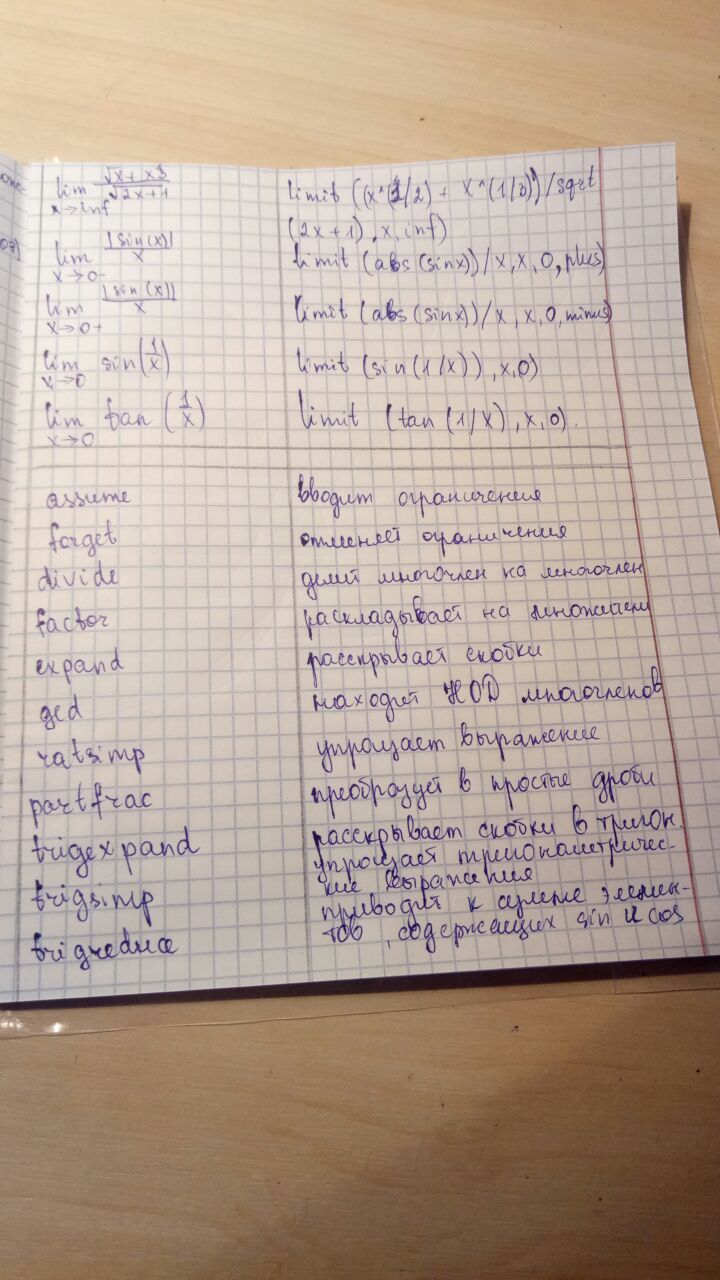 lim √x + x³ / √2x+1 limit ((x^(1/2) + x^(1/3))/sqrt
x→inf (2x+1), x, inf)
lim |sin(x)| / x limit (abs(sinx))/x, x, 0, plus)
x→0-
lim |sin(x)| / x limit (abs(sinx))/x, x, 0, minus)
x→0+
lim sin(1/x) limit (sin(1/x)), x, 0)
x→0
lim tan (1/x) limit (tan(1/x), x, 0).
x→0
assume вводит ограничения
forget отменяет ограничения
divide делит многочлен на многочлен
factor раскладывает на множители
expand расскрывает скобки
gcd находит НОД многочленов
ratsimp упрощает выражение
partfrac преобразует в простые дроби
trigexpand расскрывает скобки в тригон.
trigsimp упрощает тригонометричес-
кие выражения
trigreduce приводит к сумме элемен-
тов, содержащих sin и cos